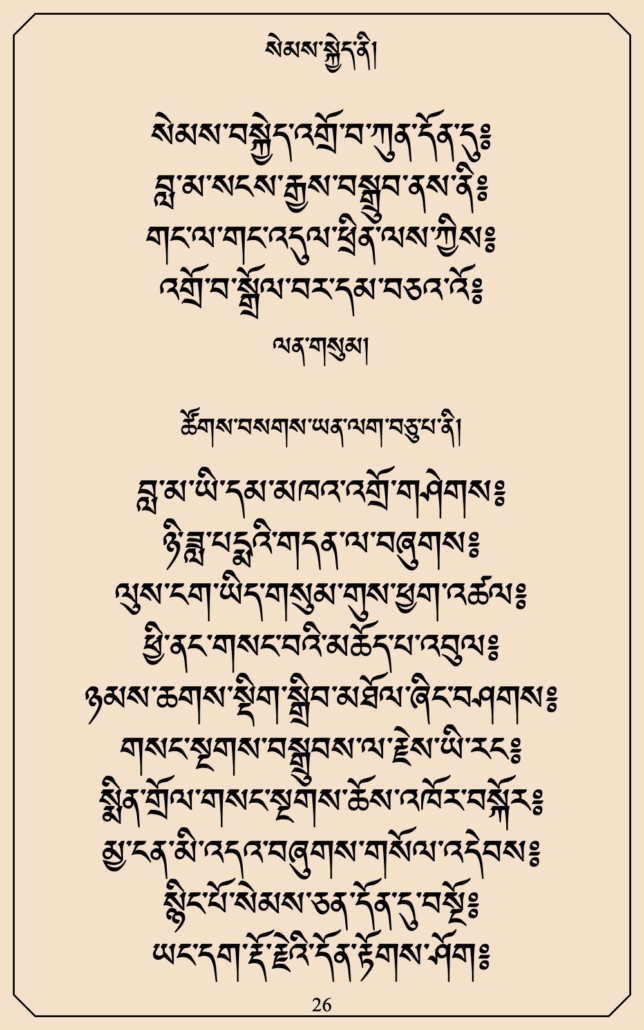 སེམས་སྐྱེད་ནི།
སེམས་བསྐྱེད་འགྲོ་བ་ཀུན་དོན་དུ༔
བླ་མ་སངས་རྒྱས་བསྒྲུབ་ནས་ནི༔
གང་ལ་གང་འདུལ་ཕྲིན་ལས་ཀྱིས༔
འགྲོ་བ་སྒྲོལ་བར་དམ་བཅའ་འོ༔
ལན་གསུམ།
ཚོགས་བསགས་ཡན་ལག་བཅུ་པ་ནི།
བླ་མ་ཡི་དམ་མཁའ་འགྲོ་གཤེགས༔
ཉི་ཟླ་པདྨའི་གདན་ལ་བཞུགས༔
ལུས་ངག་ཡིད་གསུམ་གུས་ཕྱག་འཚལ༔
ཕྱི་ནང་གསང་བའི་མཆོད་པ་འབུལ༔
ཉམས་ཆགས་སྡིག་སྒྲིབ་མཐོལ་ཞིང་བཤགས༔
གསང་སྔགས་བསྒྲུབས་ལ་རྗེས་ཡི་རང༔
སྨིན་གྲོལ་གསང་སྔགས་ཆོས་འཁོར་བསྐོར༔
མྱ་ངན་མི་འདའ་བཞུགས་གསོལ་འདེབས༔
སྙིང་པོ་སེམས་ཅན་དོན་དུ་བསྔོ༔
ཡང་དག་རྡོ་རྗེའི་དོན་རྟོགས་ཤོག༔
26